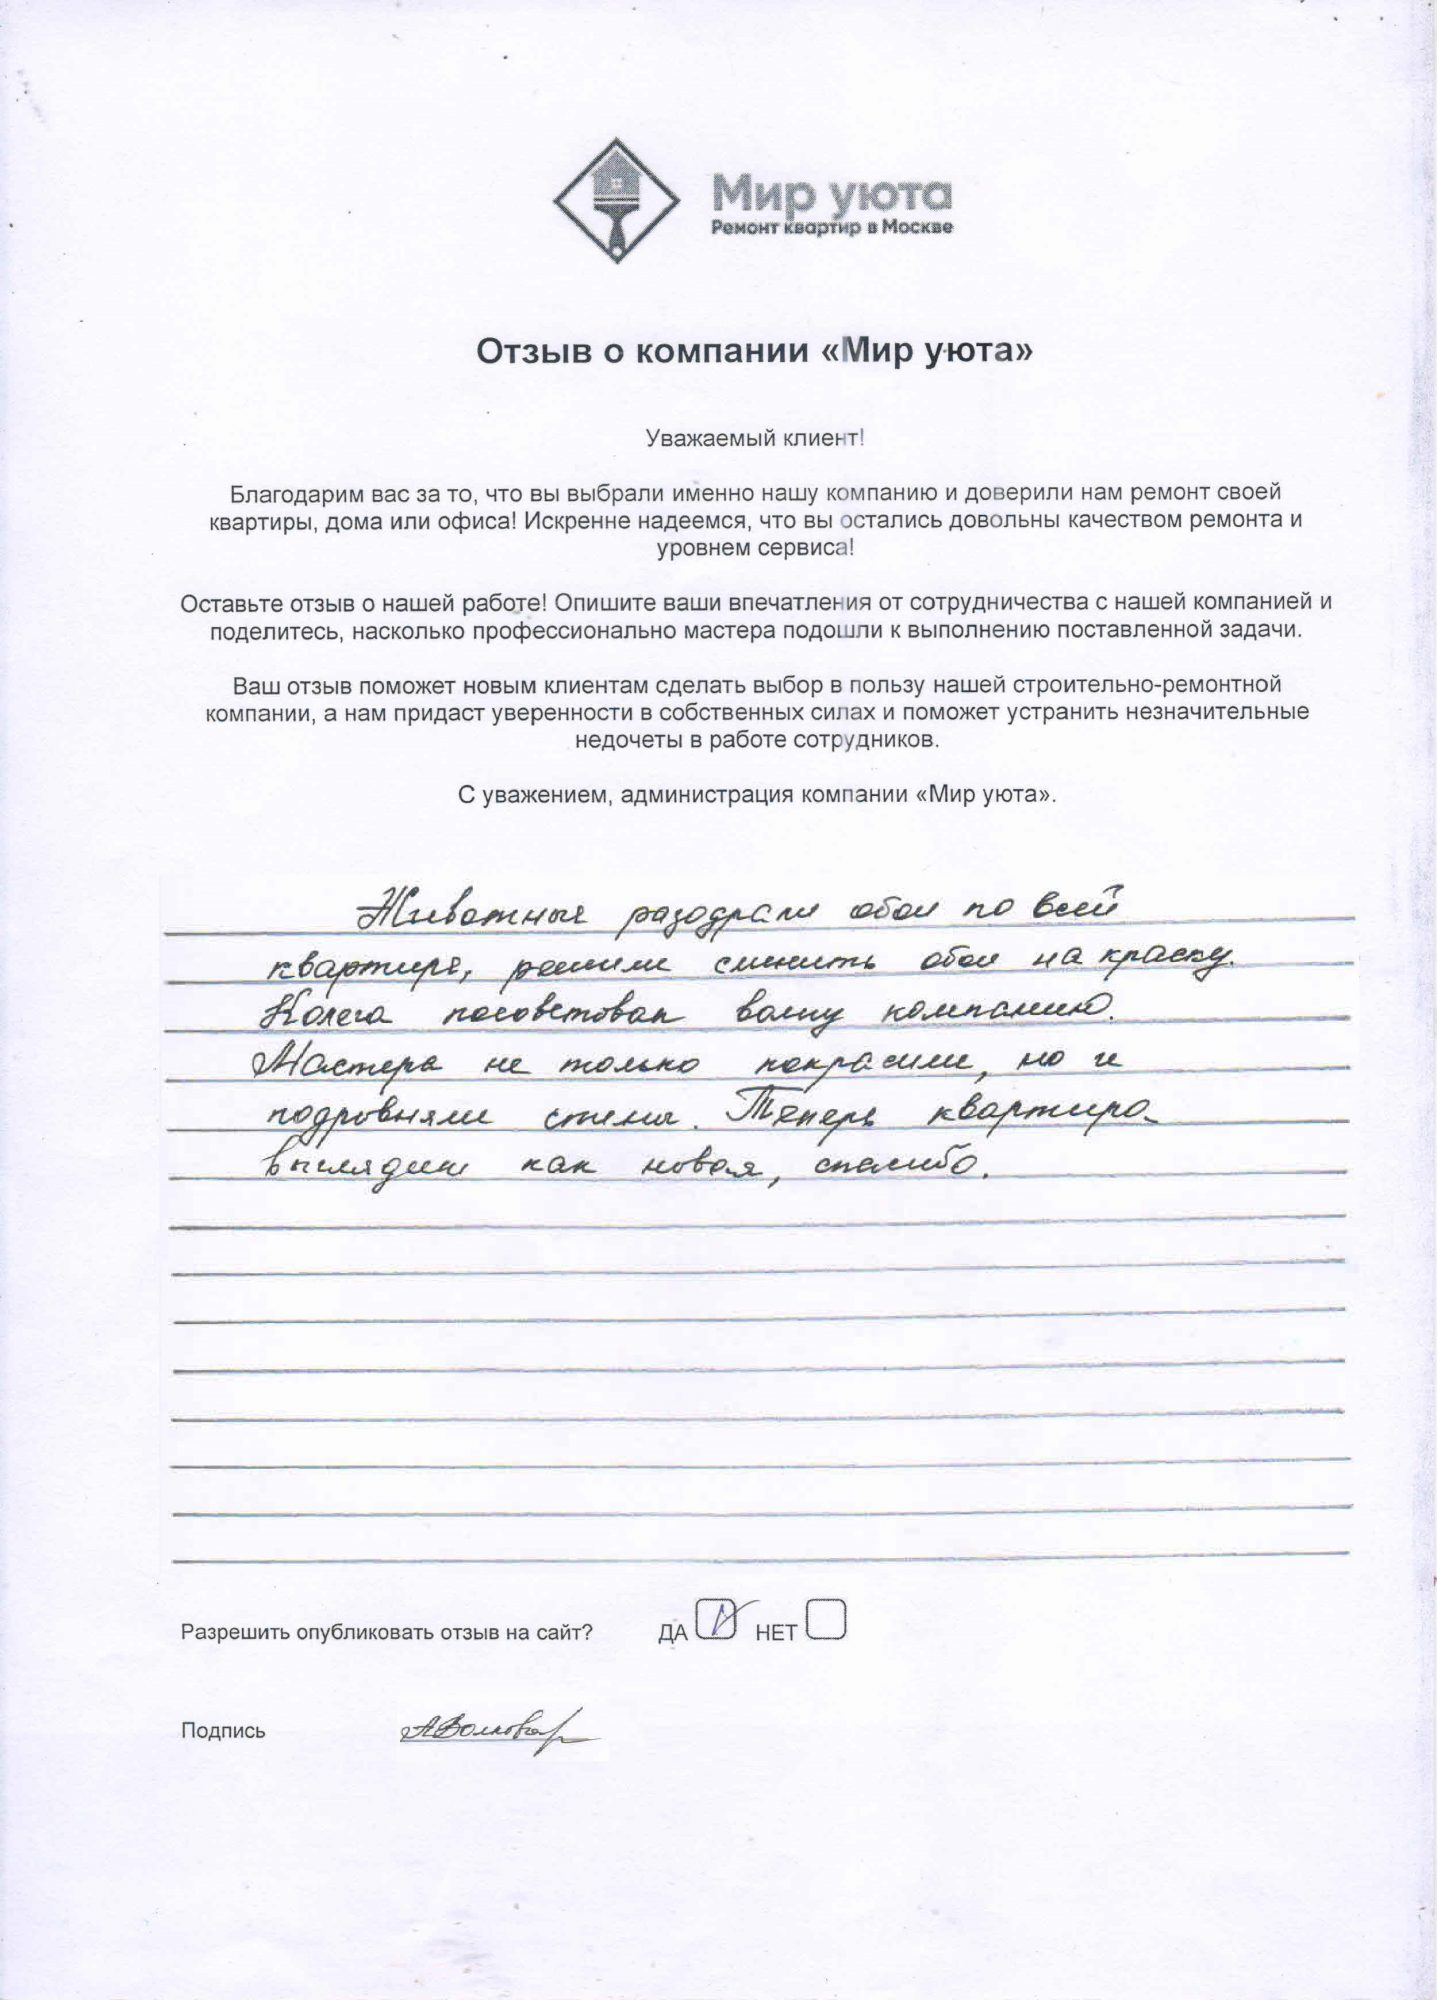 Мир уюта
Ремонт квартир в Москве
Отзыв о компании «Мир уюта»
Уважаемый клиент!
Благодарим вас за то, что вы выбрали именно нашу компанию и доверили нам ремонт своей
квартиры, дома или офиса! Искренне надеемся, что вы остались довольны качеством ремонта и
уровнем сервиса!
Оставьте отзыв о нашей работе! Опишите ваши впечатления от сотрудничества с нашей компанией и
поделитесь, насколько профессионально мастера подошли к выполнению поставленной задачи.
Ваш отзыв поможет новым клиентам сделать выбор в пользу нашей строительно-ремонтной
компании, а нам придаст уверенности в собственных силах и поможет устранить незначительные
недочеты в работе сотрудников.
С уважением, администрация компании «Мир уюта».
Животные разодрали обои по всей
квартире, решили сменить обои на краску.
Колега посоветовал вашу компанию.
Мастера не только покрасили, но и
подровняли стены. Теперь квартира
выглядит как новая, спасибо.
Разрешить опубликовать отзыв на сайт? ДА НЕТ
Подпись